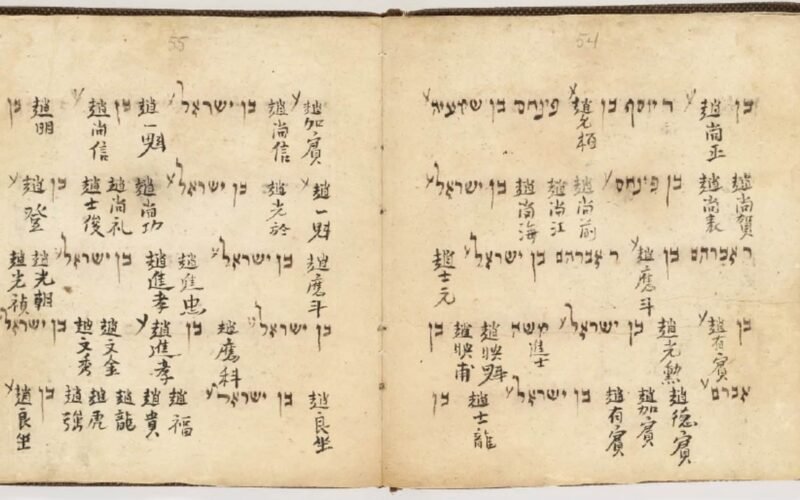 54
בן 趙尚正 ר יוסף בן 趙光栢 פינחס בן שמעיה
趙尚賀 趙尚表 בן פינחס 趙尚前 趙尚江 趙尚海 בן ישראל
ר אברהם בן 趙應斗 ר אברהם בן ישראל 趙士元
בן 趙有賓 趙光勲 בן ישראל משה 進士 趙映 趙映甫 בן
אברם 趙德賓 趙加賓 趙有賓 בן ישראל 趙士龍 בן
55
趙加賓 趙尚信 בן ישראל 趙一魁 בן 趙尚信 趙明 בן
趙一魁 趙光於 בן ישראל 趙尚功 趙尚礼 趙士俊 בן 趙登
趙應斗 בן ישראל 趙進忠 趙進孝 בן ישראל 趙光朝 趙光禎
בן ישראל 趙應科 בן 趙進孝 趙文金 趙文秀 בן ישראל
趙良坐 בן ישראל 趙福 趙貴 趙龍 趙虎 趙強 בן 趙良坐